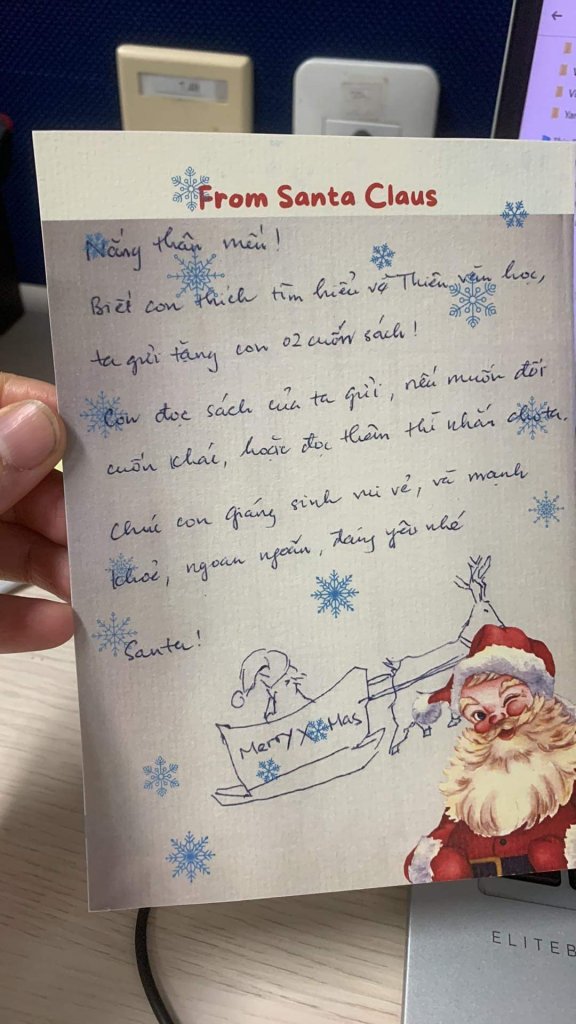 From Santa Claus
Nắng thân mến!
Biết con thích tìm hiểu về Thiên văn học,
ta gửi tặng con 02 cuốn sách!
Con đọc sách của ta gửi, nếu muốn đổi
cuốn khác, hoặc đọc thêm thì nhắn cho ta.
Chúc con Giáng sinh vui vẻ, và mạnh
khoẻ, ngoan ngoãn, đáng yêu nhé
Santa!
Merry X Mas
ELITEB